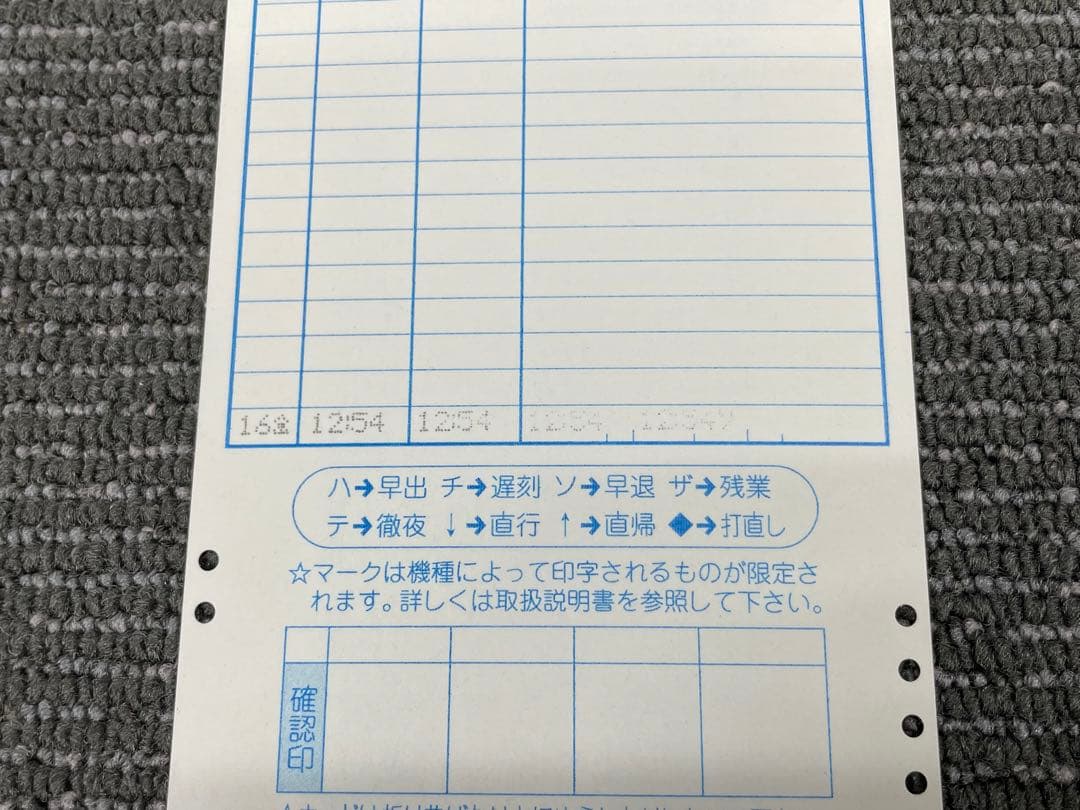 16金 12:54 12:54 12:54
ハ→早出 チ→遅刻 ソ→早退 ザ→残業
テ→徹夜 ↓→直行 ↑→直帰 ◆→打直し
☆マークは機種によって印字されるものが限定さ
れます。詳しくは取扱説明書を参照して下さい。
確認印